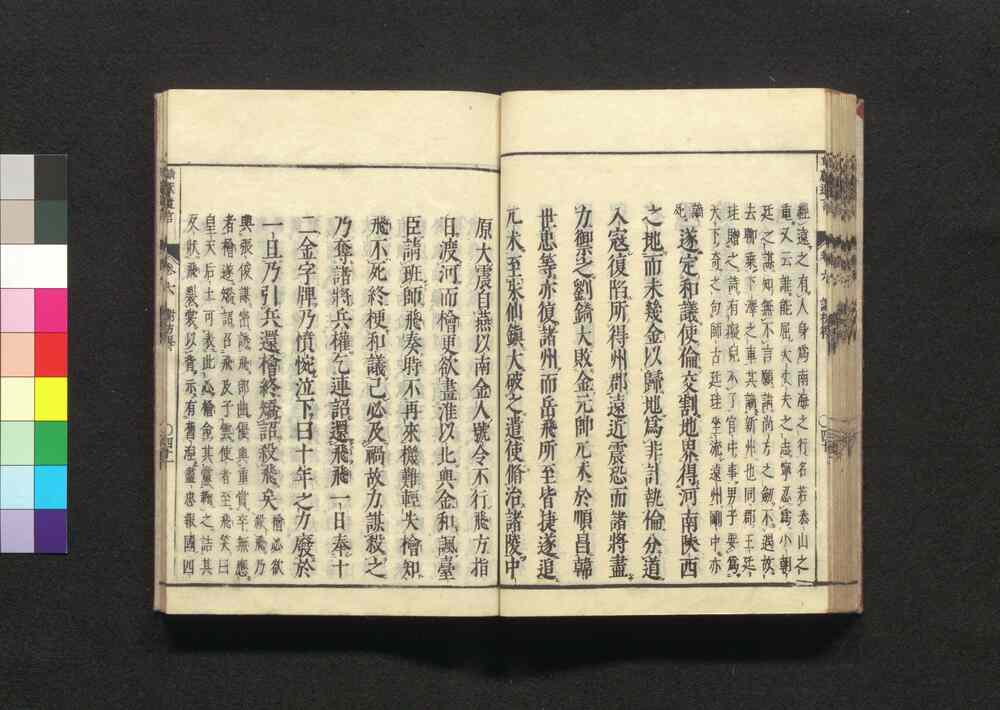 輕遠之有人身爲南海之行名若泰山之
重又云誰能屈大丈夫之志寧忍爲小朝
廷之謀知無不言願請尚方之劍不遇故
去聊乘下澤之車其謫新州也同郡王廷
珪贈之詩有癡兒不了官中事男子要爲
天下奇之句師古廷珪坐流遠州剛中亦
謫死
遂定和議使倫交割地界得河南陝西
之地而未幾金以歸地爲非計執倫分道
入寇復陷所得州郡遠近震恐而諸將盡
力禦之劉錡大敗金元帥兀朮於順昌韓
世忠等亦復諸州而岳飛所至皆捷遂追
兀朮至朱仙鎭大破之遣使脩治諸陵中
原大震自燕以南金人號令不行飛方指
日渡河而檜更欲盡淮以北與金和諷臺
臣請班師飛奏時不再來機難輕失檜知
飛不死終梗和議己必及禍故力謀殺之
乃奪諸將兵權乞連詔還飛飛一日奉十
二金字牌乃憤惋泣下曰十年之方廢於
一旦乃引兵還檜終矯詔殺飛矣
檜必欲
殺飛乃
與張俊謀密誘飛部曲優與重賞卒無應
者檜遂矯詔召飛及子雲使者至飛笑曰
皇天后土可表此心檜命其黨鞫之詰其
反狀飛裂裳以背示有舊涅盡忠報國四
卷六
○四十一